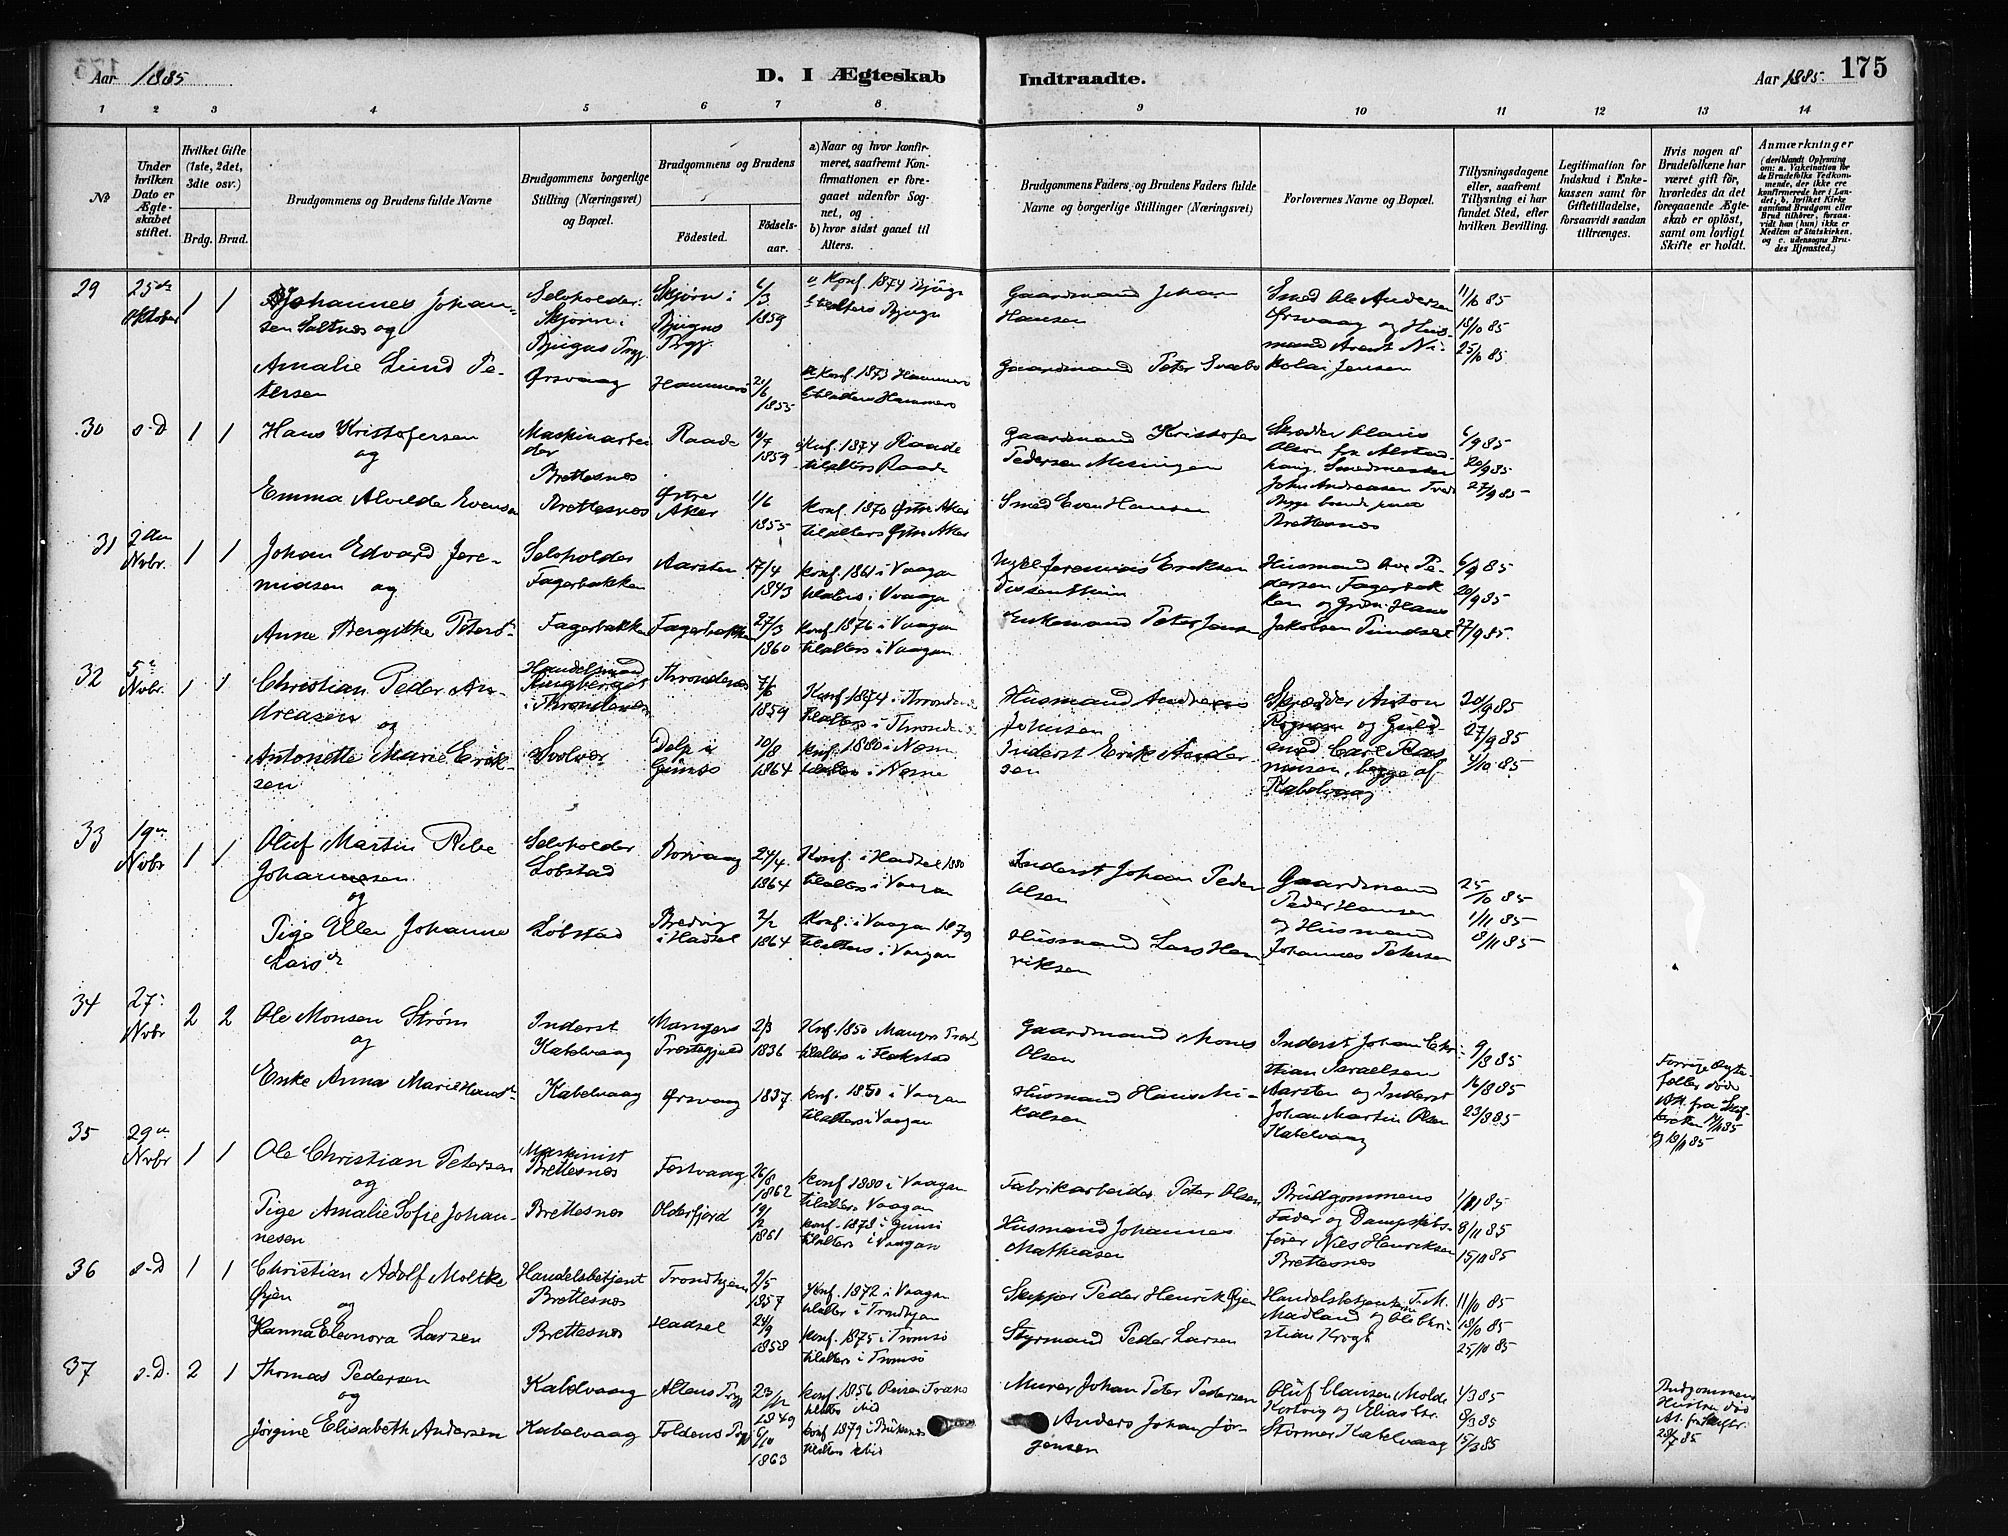 Aar 1885
D. I Ægteskab
Indtraadte.
Aar 1885. 175
1 2 3 4 5 6 7 8 9 10 11 12 13 14
No
Under hvilken Dato er Ægteskabet stiftet.
Hvilket Gifte (1ste, 2det, 3die osv.)
Brdg. Brud.
Brudgommens og Brudens fulde Navne
Brudgommens borgerlige Stilling (Næringsvei) og Bopæl.
Brudgommens og Brudens
Fødested. Fødselsaar.
a) Naar og hvor konfirmeret, saafremt Konfirmationen er foregaaet udenfor Sognet, og
b) hvor sidst gaaet til Alters.
Brudgommens Faders, og Brudens Faders fulde Navne og borgerlige Stillinger (Næringsvei)
Forlovernes Navne og Bopæl.
Tillysningsdagene eller, saafremt Tillysning ei har fundet Sted, efter hvilken Bevilling.
Legitimation for Indskud i Enkekassen samt for Giftetilladelse, forsaavidt saadan tiltrænges.
Hvis nogen af Brudefolkene har været gift før, hvorledes da det foregaaende Ægteskab er opløst, samt om lovligt Skifte er holdt.
Anmærkninger
(deriblandt Oplysning om: a. Vakcination for de Brudefolks Vedkommende, der ikke ere konfirmerede her i Landet; b. hvilket Kirkesamfund Brudgom eller Brud tilhører, forsaavidt han (hun) ikke er Medlem af Statskirken, og c. udensogns Brudes Hjemsted.)
29 25de Oktober 1 1
Johannes Johansen Saltnes og
Selveholder Skjørn i Bjugns Prgj.
Skjørn i Bjugns Prgj. 6/3 1859
a Konf. 1874 Bjugn
b tilalters Bjugn
Gaardmand Johan Hansen
Smed Ole Andersen Ørsvaag og Husmand Arent Nikolai Jensen
11/10 85
18/10 85
25/10 85
Amalie Lund Petersen
Ørsvaag
Hammerø 21/6 1855
a Konf. 1873 Hammerø
b tilalters Hammerø
Gaardmand Peter
30 s.D 1 1
Hans Kristofersen og
Maskinarbeider Brettesnes
Raade 1859
Konf. 1874 Raade
tilalters Raade
Gaardmand Kristofer Pedersen
Skrædder Claus Olsen fra
6/9 85
20/9 85
27/9 85
Emma Alvilde Evensen
Brettesnes
Østre Aker 1/6 1855
Konf. 1870 Østre Aker
tilalters Østre Aker
Smed Even Hansen
John Andreasen
Brettesnes
31 2den Nvbr. 1 1
Johan Edvard Jeremiasen og
Selveholder Fagerbakken
Aarsten 17/4 1843
konf. 1861 i Vaagan
tilalters i Vaagan
Jeremias Eriksen
Husmand Ole Pedersen Fagerbakken og Hans Jakobsen
6/9 85
20/9 85
27/9 85
Anne Bergitte Peters
Fagerbakken
Fagerbakken 27/3 1860
konf. 1876 i Vaagan
tilalters i Vaagan
Enkemand Peter Jensen
32 5te Nvbr. 1 1
Christian Peder Andreasen og
Handelsmand i Throndenes
Throndenes 7/6 1859
Konf. 1874 i Throndenes
tilalters i Throndenes
Husmand Andreas Johnsen
Skrædder Anton Rognan og Guldsmed Carl Rasmussen, begge af Kabelvaag
20/9 85
27/9 85
4/10 85
Antonette Marie Eriksen
Svolvær
Delp i Gimsø 20/8 1864
konf. 1880 i Næsne
tilalters i Næsne
Inderst Erik Andersen
33 19de Nvbr 1 1
Oluf Martin Ribe Johannesen og
Selveholder Løbstad
Borvaag 24/4 1864
Konf. i Hadsel 1880
tilalters i Vaagan
Inderst Johan Peder Olsen
Gaardmand Peder Hansen og Husmand Johannes Petersen
25/10 85
1/11 85
8/11 85
Pige Ellen Johanne Larsdr
Løbstad
Bredvig i Hadsel 2/2 1864
Konf. i Vaagan 1879
tilalters i Vaagan
Husmand Lars Henriksen
34 27de Nvbr 2 2
Ole Monsen Strøm og
Inderst Kabelvaag
Mangers Prestegjeld 2/3 1836
Konf. 1850 Mangers Prest
tilalters i Flakstad
Gaardmand Mons Olsen
Inderst Johan Christian Israelsen Aarsten og Inderst Johan Martin Olsen Kabelvaag
9/8 85
16/8 85
23/8 85
Forrige Ægtefæller døde
Att. fra Skifteretten
Enke Anna Marie Hansd
Kabelvaag
Ørsvaag 1837
konf. 1850 i Vaagan
tilalters i Vaagan
Husmand Hans Mikalsen
35 29de Nvbr 1 1
Ole Christian Petersen og
Maskinist Brettesnes
Festvaag 26/8 1862
konf. 1880 i Vaagan
tilalters Vaagan
Fabrikarbeider Peter Olsen
Brudgommens Fader og Dampskibsfører Nils Henriksen Brettesnes
1/11 85
8/11 85
15/11 85
Pige Amalie Sofie Johannesen
Brettesnes
Olderfjord 19/12 1861
konf. 1878 i Gimsø
tilalters i Vaagan
Husmand Johannes Mathiasen
36 s.D 1 1
Christian Adolf Moltke Øien og
Handelsbetjent Brettesnes
Trondhjem 2/5 1857
konf. 1872 i Vaagan
tilalters i Trondhjem
Skipper Peder Henrik Øien
Handelsbetjenterne T. M. Madland og Ole Christian Krogh
11/10 85
18/10 85
25/10 85
Hanna Eleonora Larsen
Brettesnes
Hadsel 24/9 1858
konf. 1875 i Tromsø
tilalters i Tromsø
Styrmand Peder Larsen
37 s.D. 2 1
Thomas Pedersen og
Kabelvaag
Altens Prgj 23/12 1849
konf. 1856
tilalters ibid
Murer Johan Peter Pedersen
Oluf Clausen Molde Kortvig og Elias Chr. Størmer Kabelvaag
1/3 85
8/3 85
15/3 85
Brudgommens Hustru død
Att. fra Skiftr.
28/7 85
Jørgine Elisabeth Andersen
Kabelvaag
Foldens Prgj 6/10 1863
konf. 1879 i
tilalters ibid
Anders Johan Jørgensen